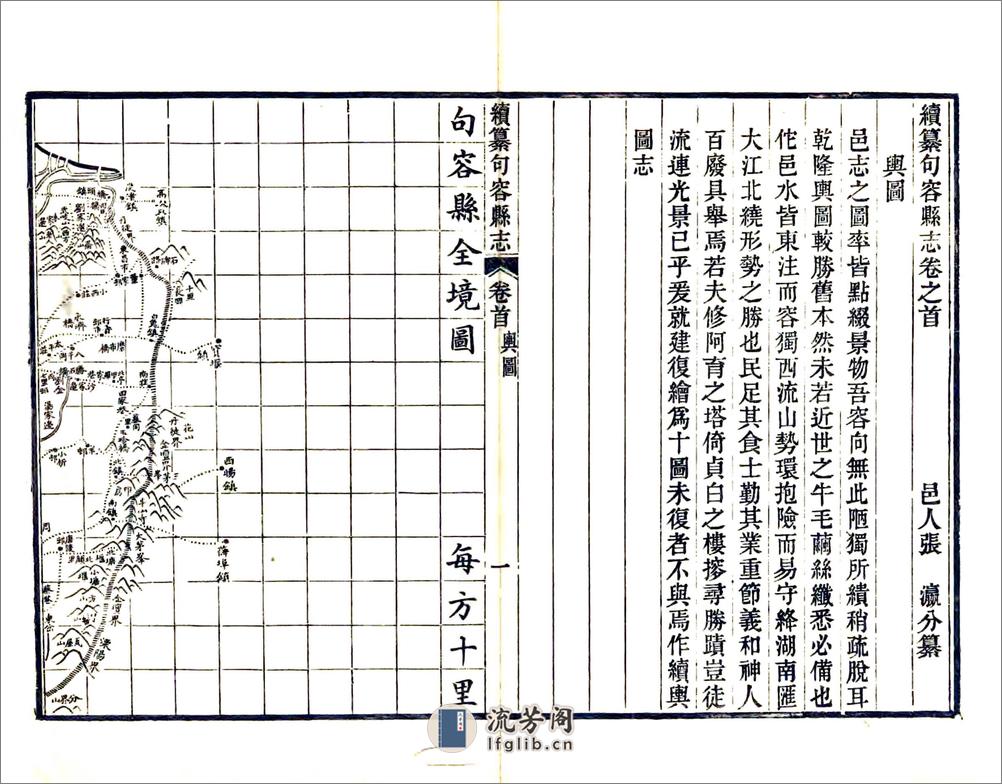 續纂句容縣志卷之首
邑人張 瀛分纂
輿圖
邑志之圖率皆點綴景物吾容向無此陋獨所繢稍疏脫耳
乾隆輿圖較勝舊本然未若近世之牛毛繭絲纖悉必備也
佗邑水皆東注而容獨西流山勢環抱險而易守絳湖南匯
大江北繞形勢之勝也民足其食士勤其業重節義和神人
百廢具舉焉若夫修阿育之塔倚貞白之樓摉尋勝蹟豈徒
流連光景已乎爰就建復繪爲十圖未復者不與焉作續輿
圖志
續纂句容縣志
卷首
輿圖
一
句容縣全境圖
每方十里
西暘鎮
丹徒界
大茅峯
金壇界
溧陽界
瓦屋山
分界山
流芳阁
lfglib.cn